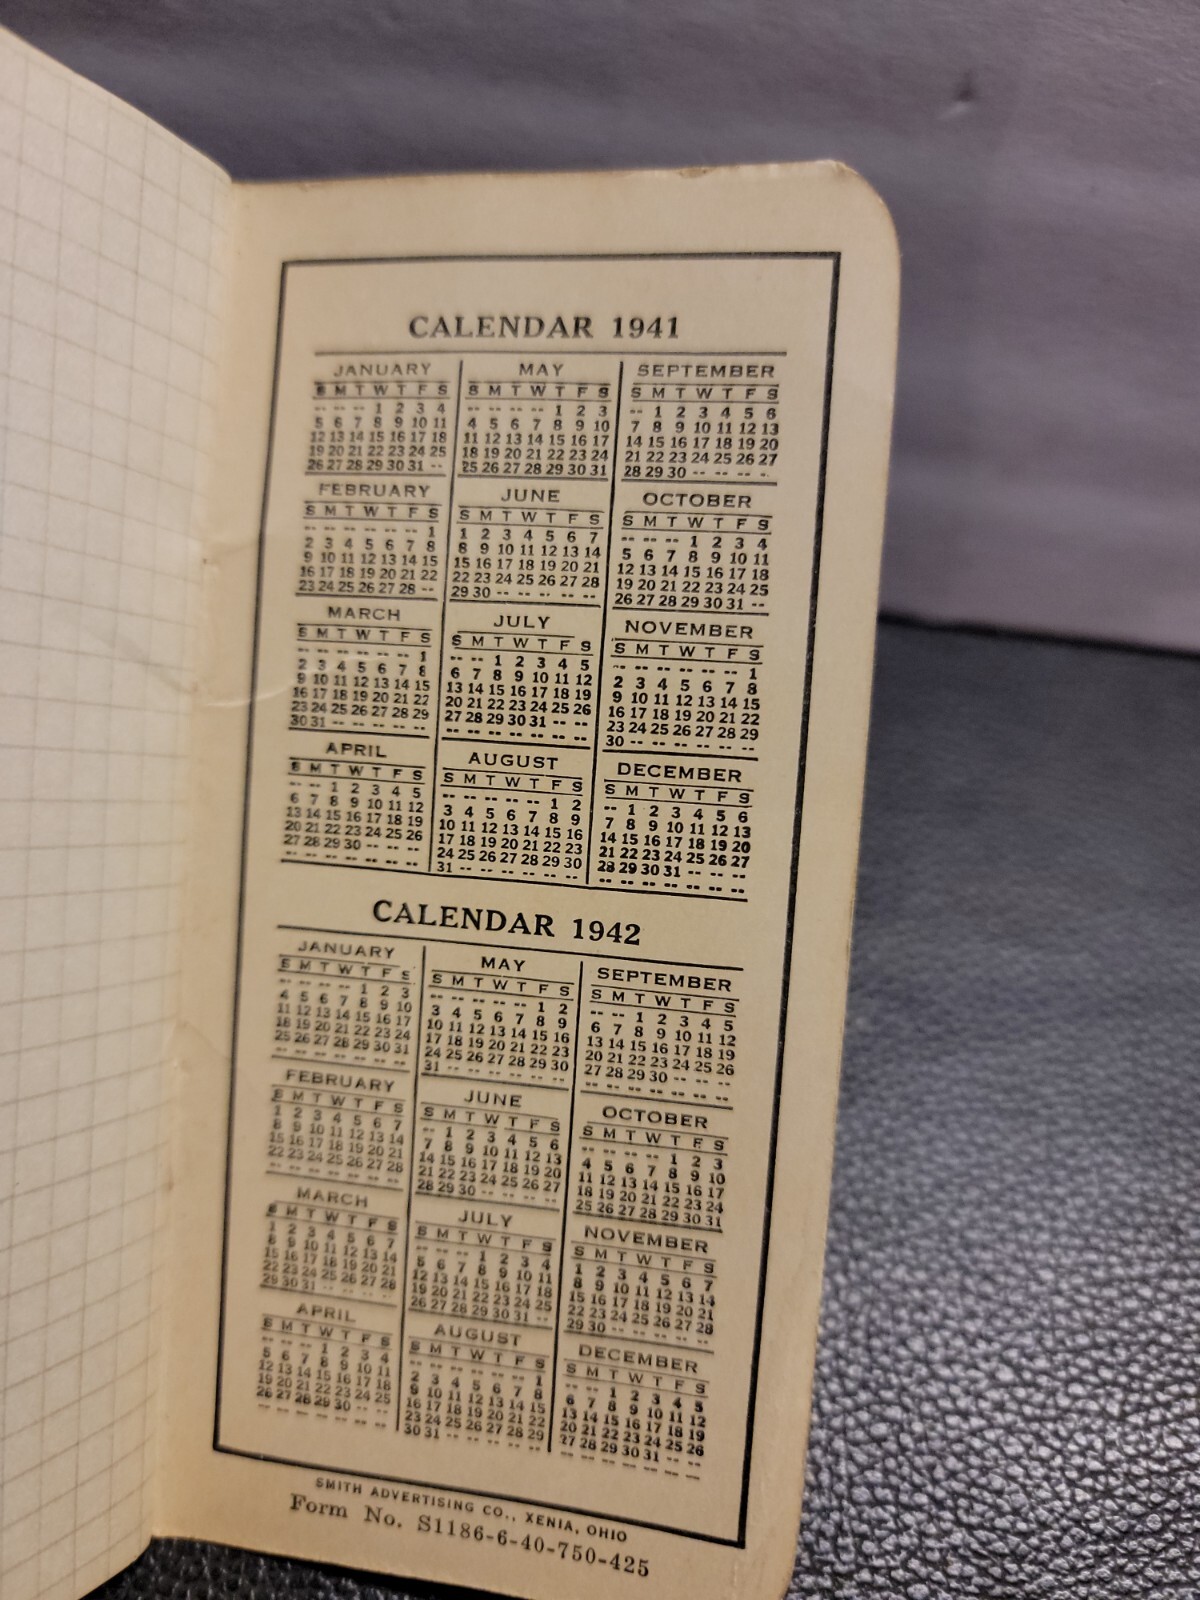 CALENDAR 1941
JANUARY
S M T W T F S
-- -- -- 1 2 3 4
5 6 7 8 9 10 11
12 13 14 15 16 17 18
19 20 21 22 23 24 25
26 27 28 29 30 31 --
FEBRUARY
S M T W T F S
-- -- -- -- -- -- 1
2 3 4 5 6 7 8
9 10 11 12 13 14 15
16 17 18 19 20 21 22
23 24 25 26 27 28 --
MARCH
S M T W T F S
-- -- -- -- -- -- 1
2 3 4 5 6 7 8
9 10 11 12 13 14 15
16 17 18 19 20 21 22
23 24 25 26 27 28 29
30 31 -- -- -- -- --
APRIL
S M T W T F S
-- -- 1 2 3 4 5
6 7 8 9 10 11 12
13 14 15 16 17 18 19
20 21 22 23 24 25 26
27 28 29 30 -- -- --
-- -- -- -- -- -- --
MAY
S M T W T F S
-- -- -- -- 1 2 3
4 5 6 7 8 9 10
11 12 13 14 15 16 17
18 19 20 21 22 23 24
25 26 27 28 29 30 31
JUNE
S M T W T F S
1 2 3 4 5 6 7
8 9 10 11 12 13 14
15 16 17 18 19 20 21
22 23 24 25 26 27 28
29 30 -- -- -- -- --
JULY
S M T W T F S
-- -- 1 2 3 4 5
6 7 8 9 10 11 12
13 14 15 16 17 18 19
20 21 22 23 24 25 26
27 28 29 30 31 -- --
-- -- -- -- -- -- --
AUGUST
S M T W T F S
-- -- -- -- -- 1 2
3 4 5 6 7 8 9
10 11 12 13 14 15 16
17 18 19 20 21 22 23
24 25 26 27 28 29 30
31 -- -- -- -- -- --
SEPTEMBER
S M T W T F S
-- 1 2 3 4 5 6
7 8 9 10 11 12 13
14 15 16 17 18 19 20
21 22 23 24 25 26 27
28 29 30 -- -- -- --
OCTOBER
S M T W T F S
-- -- -- 1 2 3 4
5 6 7 8 9 10 11
12 13 14 15 16 17 18
19 20 21 22 23 24 25
26 27 28 29 30 31 --
NOVEMBER
S M T W T F S
-- -- -- -- -- -- 1
2 3 4 5 6 7 8
9 10 11 12 13 14 15
16 17 18 19 20 21 22
23 24 25 26 27 28 29
30 -- -- -- -- -- --
DECEMBER
S M T W T F S
-- 1 2 3 4 5 6
7 8 9 10 11 12 13
14 15 16 17 18 19 20
21 22 23 24 25 26 27
28 29 30 31 -- -- --
-- -- -- -- -- -- --
CALENDAR 1942
JANUARY
S M T W T F S
-- -- -- -- 1 2 3
4 5 6 7 8 9 10
11 12 13 14 15 16 17
18 19 20 21 22 23 24
25 26 27 28 29 30 31
-- -- -- -- -- -- --
FEBRUARY
S M T W T F S
1 2 3 4 5 6 7
8 9 10 11 12 13 14
15 16 17 18 19 20 21
22 23 24 25 26 27 28
-- -- -- -- -- -- --
MARCH
S M T W T F S
1 2 3 4 5 6 7
8 9 10 11 12 13 14
15 16 17 18 19 20 21
22 23 24 25 26 27 28
29 30 31 -- -- -- --
APRIL
S M T W T F S
-- -- -- 1 2 3 4
5 6 7 8 9 10 11
12 13 14 15 16 17 18
19 20 21 22 23 24 25
26 27 28 29 30 -- --
-- -- -- -- -- -- --
MAY
S M T W T F S
-- -- -- -- -- 1 2
3 4 5 6 7 8 9
10 11 12 13 14 15 16
17 18 19 20 21 22 23
24 25 26 27 28 29 30
31 -- -- -- -- -- --
JUNE
S M T W T F S
-- 1 2 3 4 5 6
7 8 9 10 11 12 13
14 15 16 17 18 19 20
21 22 23 24 25 26 27
28 29 30 -- -- -- --
JULY
S M T W T F S
-- -- -- 1 2 3 4
5 6 7 8 9 10 11
12 13 14 15 16 17 18
19 20 21 22 23 24 25
26 27 28 29 30 31 --
AUGUST
S M T W T F S
-- -- -- -- -- -- 1
2 3 4 5 6 7 8
9 10 11 12 13 14 15
16 17 18 19 20 21 22
23 24 25 26 27 28 29
30 31 -- -- -- -- --
SEPTEMBER
S M T W T F S
-- -- 1 2 3 4 5
6 7 8 9 10 11 12
13 14 15 16 17 18 19
20 21 22 23 24 25 26
27 28 29 30 -- -- --
-- -- -- -- -- -- --
OCTOBER
S M T W T F S
-- -- -- -- 1 2 3
4 5 6 7 8 9 10
11 12 13 14 15 16 17
18 19 20 21 22 23 24
25 26 27 28 29 30 31
NOVEMBER
S M T W T F S
1 2 3 4 5 6 7
8 9 10 11 12 13 14
15 16 17 18 19 20 21
22 23 24 25 26 27 28
29 30 -- -- -- -- --
DECEMBER
S M T W T F S
-- -- 1 2 3 4 5
6 7 8 9 10 11 12
13 14 15 16 17 18 19
20 21 22 23 24 25 26
27 28 29 30 31 -- --
-- -- -- -- -- -- --
SMITH ADVERTISING CO., XENIA, OHIO
Form No. S1186-6-40-750-425